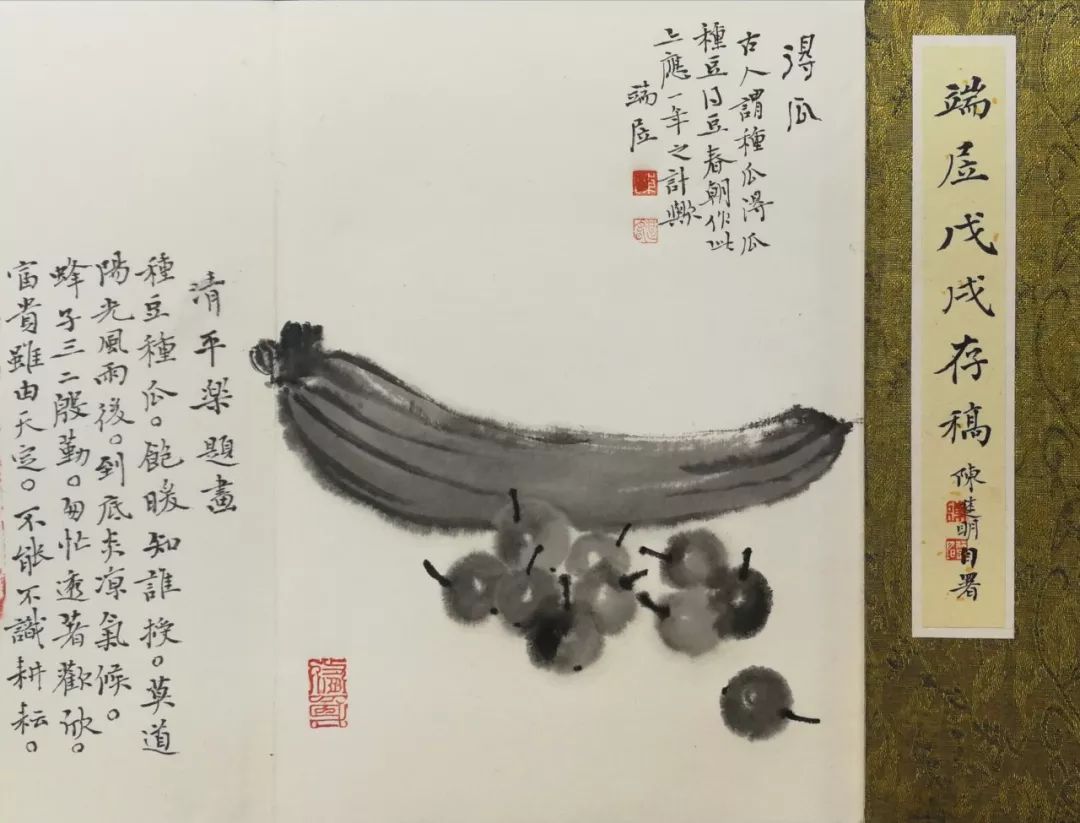 端居戊戌存稿
陳建明自署
得瓜
古人謂種瓜得瓜
種豆得豆春朝作此
應一年之計歟
端居
清平樂題畫
種豆種瓜。飽暖知誰授。莫道
陽光風雨後。到底炎涼氣候。
蜂子三二殷勤。匆忙透著歡欣。
富貴雖由天定。不能不識耕耘。